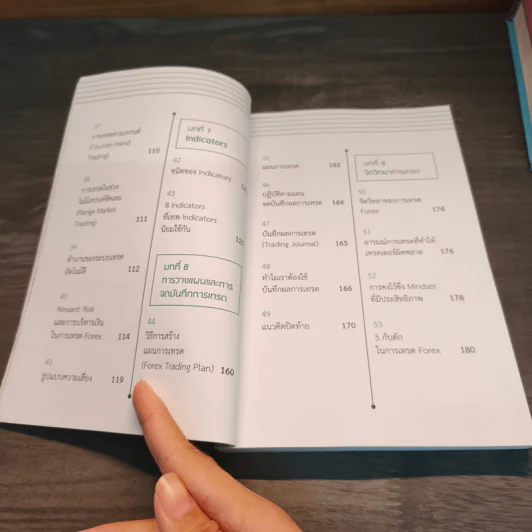 37
การเทรดสวนเทรนด์
(Counter-trend
Trading) 110
38
การเทรดในช่วง
ไม่มีเทรนด์ชัดเจน
(Range Market
Trading) 111
39
ตำนานของระบบเทรด
อัตโนมัติ 112
40
Reward: Risk
และการบริหารเงิน
ในการเทรด Forex 114
41
รูปแบบความเสี่ยง 119
บทที่ 7
Indicators
42
ชนิดของ Indicators
43
8 Indicators
ที่เทพ Indicators
นิยมใช้กัน 125
บทที่ 8
การวางแผนและการ
จดบันทึกการเทรด
44
วิธีการสร้าง
แผนการเทรด
(Forex Trading Plan) 160
45
แผนการเทรด 162
46
ปฏิบัติตามแผน
จดบันทึกผลการเทรด 164
47
บันทึกผลการเทรด
(Trading Journal) 165
48
ทำไมเราต้องใช้
บันทึกผลการเทรด 166
49
แนวคิดปิดท้าย 170
บทที่ 9
จิตวิทยาการเทรด
50
จิตวิทยาของการเทรด
Forex 174
51
อารมณ์การเทรดที่ทำให้
เทรดเดอร์ผิดพลาด 176
52
การคงไว้ซึ่ง Mindset
ที่มีประสิทธิภาพ 178
53
5 กับดัก
ในการเทรด Forex 180